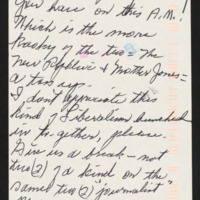 you have on this A.M.!
Which is the more
of the two = the
New Republic & Mother Jones =
a toss up.
I don't appreciate this
kind of Liberalism bunched
in together, please.
Give us a break — not
two (2) of a kind on the
same two (2) "journalist"